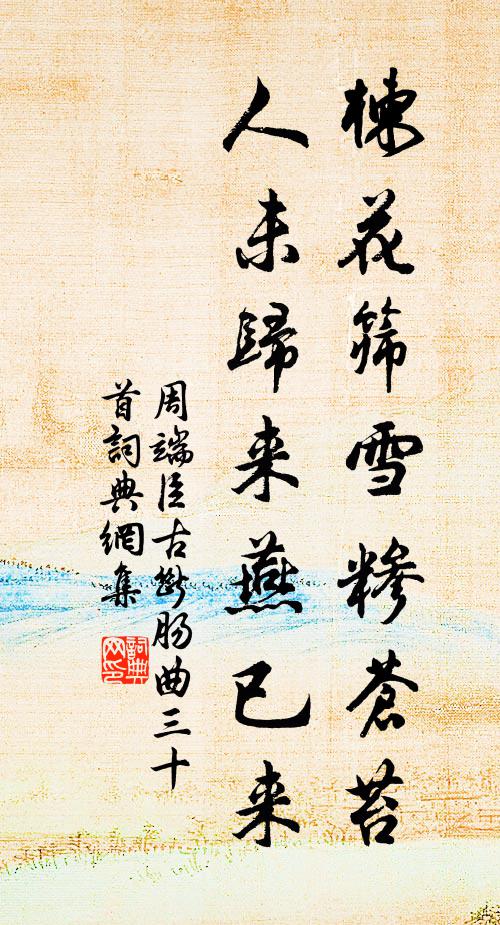 楝花筛雪糁蒼苔
人未歸来燕已来
周端臣古斷肠曲三十
首詞典網集
詞典
网印